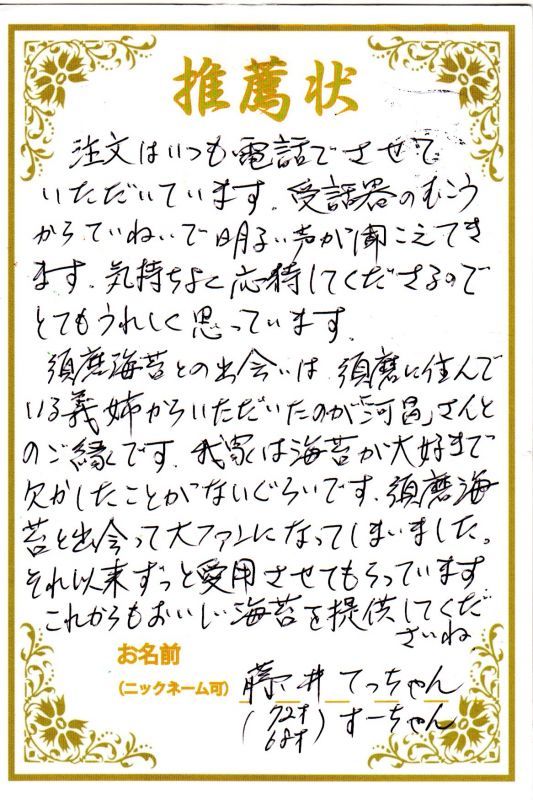 推薦状
注文はいつも電話でさせて
いただいています。受話器のむこう
からていねいで明るい声が聞こえてき
ます。気持ちよく応待してくださるので
とてもうれしく思っています。
須磨海苔との出会いは、須磨に住んで
いる義姉からいただいたのが「河昌」さんと
のご縁です。我家は海苔が大好きで
欠かしたことがないぐらいです。須磨海
苔と出会って大ファンになってしまいました。
それ以来ずっと愛用させてもらっています
これからもおいしい海苔を提供してくだ
さいね
お名前
(ニックネーム可)
藤井 てっちゃん
(72才 68才) すーちゃん